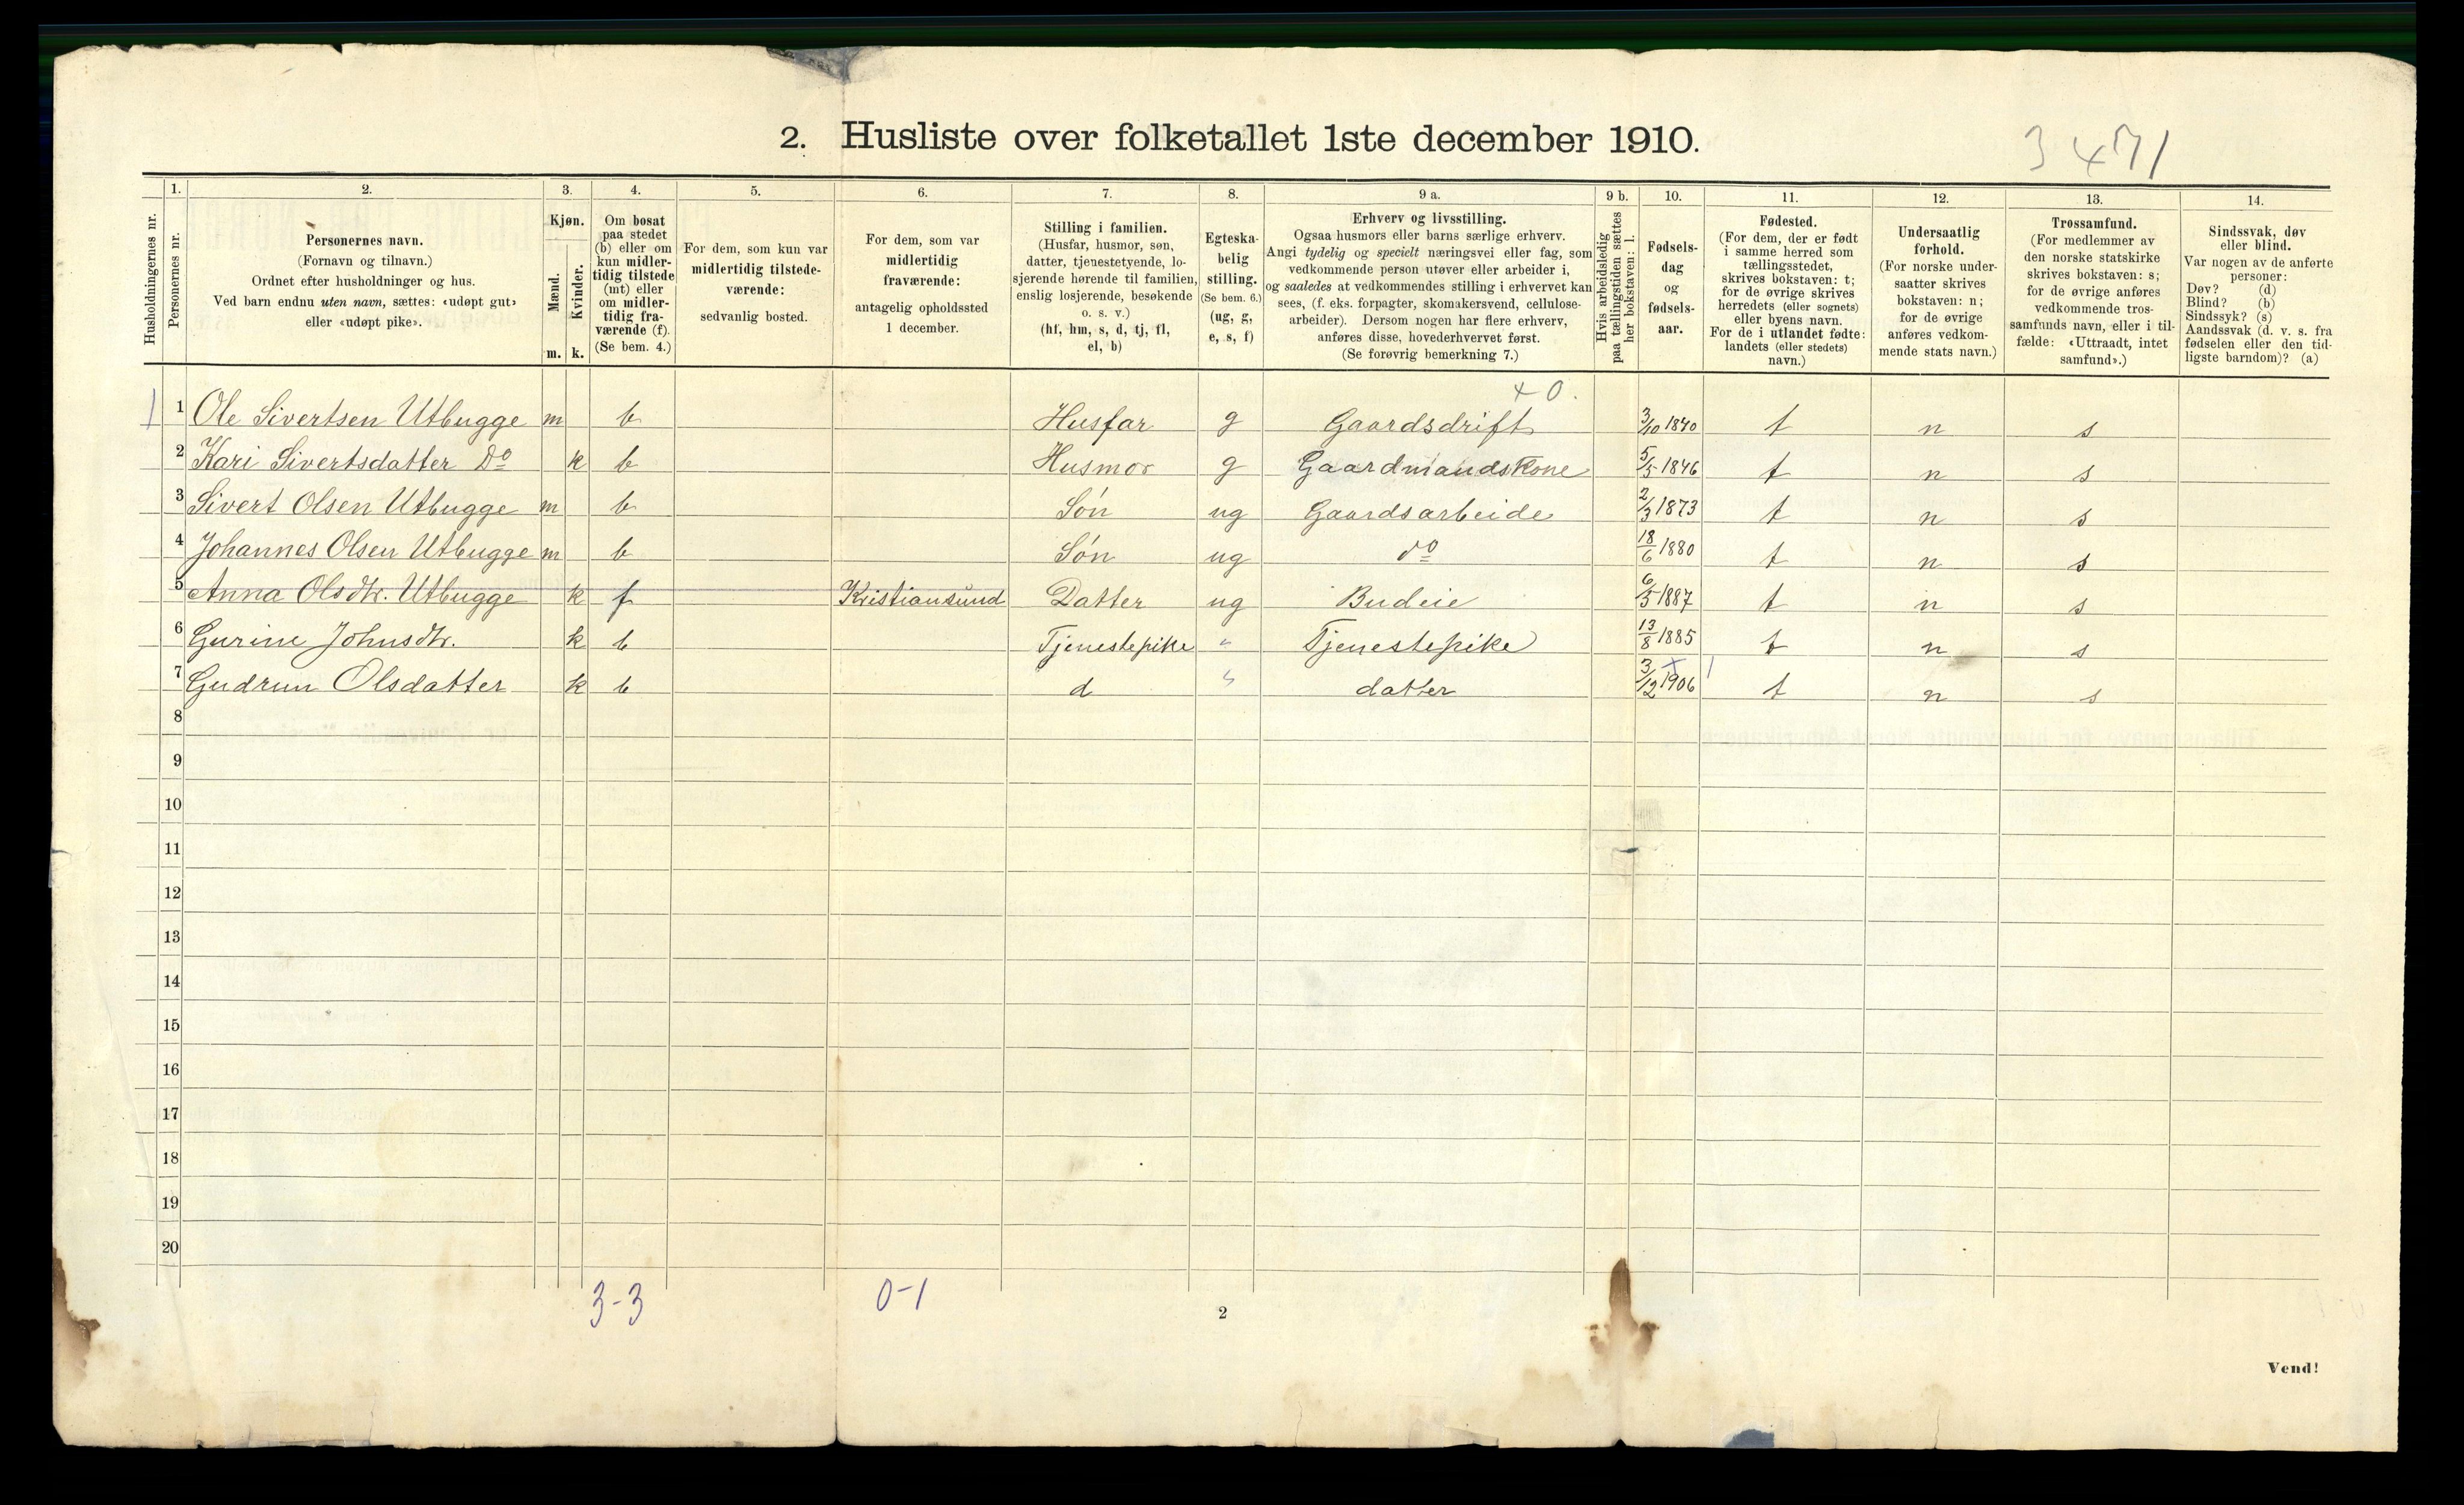 2. Husliste over folketallet 1ste december 1910.
3471
Husholdningernes nr.
1.
Personernes nr.
2.
Personernes navn.
(Fornavn og tilnavn.)
Ordnet efter husholdninger og hus.
Ved barn endnu uten navn, sættes: «udøpt gut»
eller «udøpt pike».
3.
Kjøn.
Mænd.
Kvinder.
m. k.
4.
Om bosat
paa stedet
(b) eller om
kun midler-
tidig tilstede
(mt) eller
om midler-
tidig fra-
værende (f).
(Se bem. 4.)
5.
For dem, som kun var
midlertidig tilstede-
værende:
sedvanlig bosted.
6.
For dem, som var
midlertidig
fraværende:
antagelig opholdssted
1 december.
7.
Stilling i familien.
(Husfar, husmor, søn,
datter, tjenestetyende, lo-
sjerende hørende til familien,
enslig losjerende, besøkende
o. s. v.)
(hf, hm, s, d, tj, fl,
el, b)
8.
Egteska-
belig
stilling.
(Se bem. 6.)
(ug, g,
e, s, f)
9 a.
Erhverv og livsstilling.
Ogsaa husmors eller barns særlige erhverv.
Angi tydelig og specielt næringsvei eller fag, som
vedkommende person utøver eller arbeider i,
og saaledes at vedkommendes stilling i erhvervet kan
sees, (f. eks. forpagter, skomakersvend, cellulose-
arbeider). Dersom nogen har flere erhverv,
anføres disse, hovederhvervet først.
(Se forøvrig bemerkning 7.)
9 b.
Hvis arbeidsledig
paa tællingstiden sættes
her bokstaven: l.
10.
Fødsels-
dag
og
fødsels-
aar.
11.
Fødested.
(For dem, der er født
i samme herred som
tællingsstedet,
skrives bokstaven: t;
for de øvrige skrives
herredets (eller sognets)
eller byens navn.
For de i utlandet fødte:
landets (eller stedets)
navn.)
12.
Undersaatlig
forhold.
(For norske under-
saatter skrives
bokstaven: n;
for de øvrige
anføres vedkom-
mende stats navn.)
13.
Trossamfund.
(For medlemmer av
den norske statskirke
skrives bokstaven: s;
for de øvrige anføres
vedkommende tros-
samfunds navn, eller i til-
fælde: «Uttraadt, intet
samfund».)
14.
Sindssvak, døv
eller blind.
Var nogen av de anførte
personer:
Døv? (d)
Blind? (b)
Sindssyk? (s)
Aandssvak (d. v. s. fra
fødselen eller den tid-
ligste barndom)? (a)
40.
1 1 Ole Sivertsen Utbugge m b Husfar g Gaardsdrift 3/10 1840 t n s
2 Kari Sivertsdatter Do k b Husmor g Gaardmandskone 5/5 1846 t n s
3 Sivert Olsen Utbugge m b Søn ug Gaardsarbeide 2/3 1873 t n s
4 Johannes Olsen Utbugge m b Søn ug do 18/6 1880 t n s
5 Anna Olsdtr. Utbugge k f Kristiansund Datter ug Budeie 6/5 1887 t n s
6 Gurine Johnsdtr. k b Tjenestepike " Tjenestepike 13/8 1885 t n s
7 Gudrun Olsdatter k b d " datter 3/12 1906 t n s
8
9
10
11
12
13
14
15
16
17
18
19
20
3-3 0-1
2
Vend!